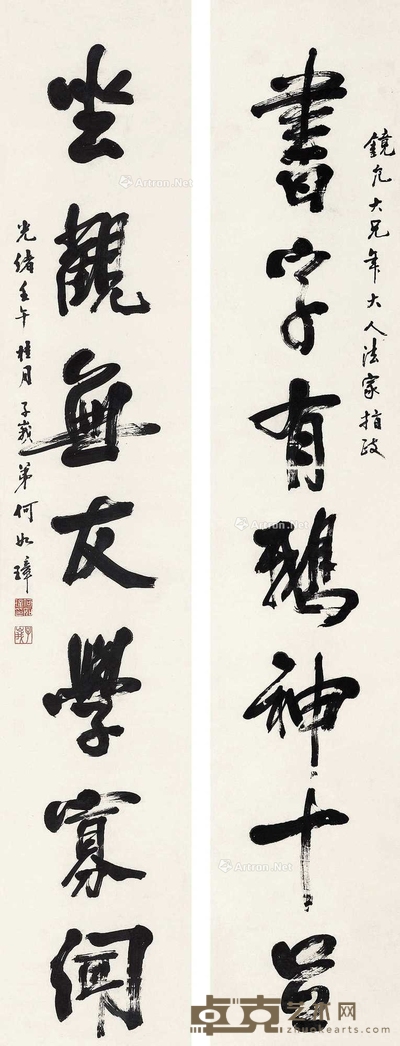 鏡允大兄年大人法家指政
書字有鵝神十足
坐觀無友學寡聞
光緒壬午桂月子峩弟何如璋
Artron.Net
Artron.Net
Artron.Net
Artron.Net
卓克艺术网
www.zhuokearts.com